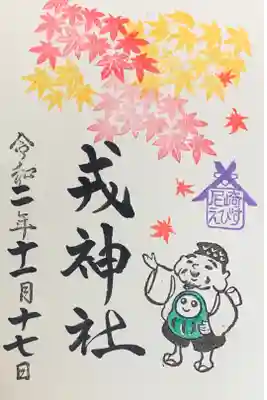 尼崎
えびす
戎神社
令和二年十一月十七日